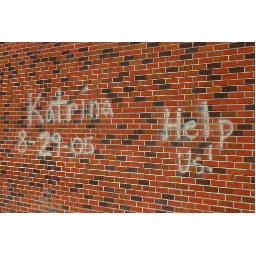 Katrina
8-29-05
Help
Us!